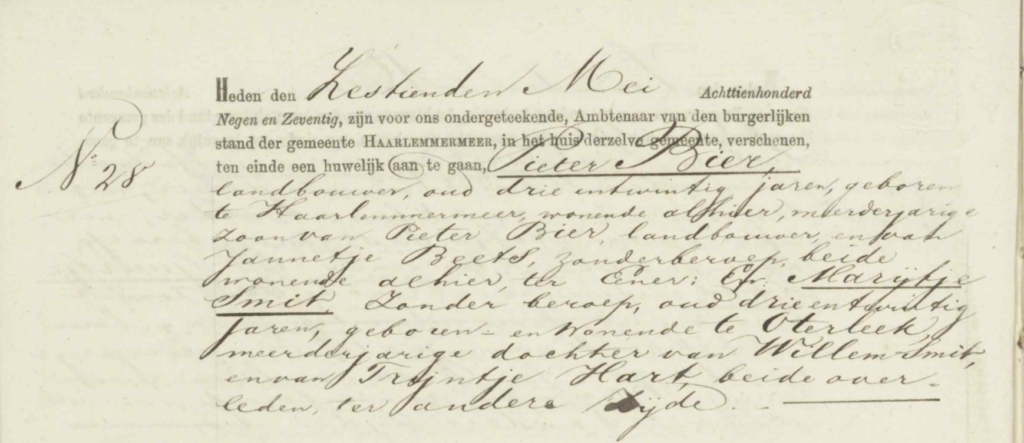 Heden den Zestienden Mei Achttienhonderd
Negen en Zeventig, zijn voor ons ondergeteekende, Ambtenaar van den burgerlijken
stand der gemeente HAARLEMMERMEER, in het huis derzelve gemeente, verschenen,
ten einde een huwelijk aan te gaan, Pieter Bier,
No 28
landbouwer, oud drie entwintig jaren, geboren
te Haarlemmermeer, wonende alhier, meerderjarige
zoon van Pieter Bier, landbouwer, en van
Jannetje Beets, zonder beroep, beide
wonende alhier, ter Eener: En Marijtje
Smit, zonder beroep, oud drie entwintig
jaren, geboren- en wonende te Oterleek,
meerderjarige dochter van Willem Smit,
en van Trijntje Hart, beide over-
leden, ter andere Zijde.